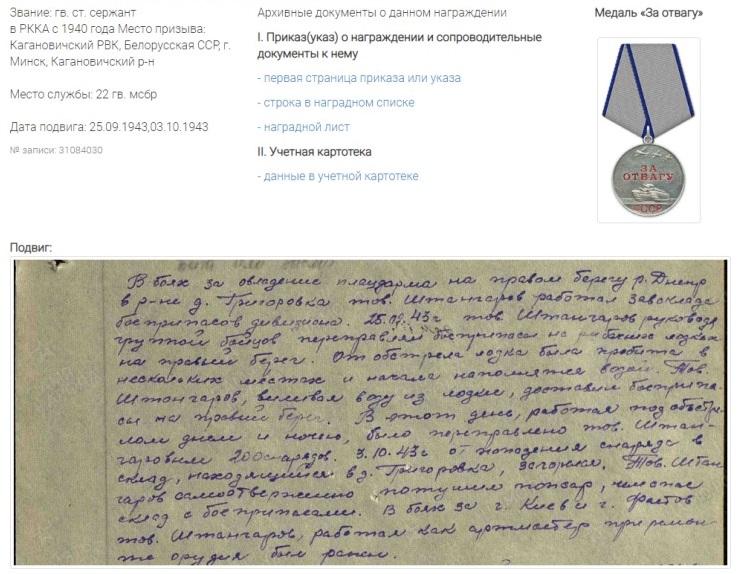 Звание: гв. ст. сержант
в РККА с 1940 года Место призыва:
Кагановичский РВК, Белорусская ССР, г.
Минск, Кагановичский р-н
Место службы: 22 гв. мсбр
Дата подвига: 25.09.1943,03.10.1943
№ записи: 31084030
Архивные документы о данном награждении
I. Приказ(указ) о награждении и сопроводительные
документы к нему
- первая страница приказа или указа
- строка в наградном списке
- наградной лист
II. Учетная картотека
- данные в учетной картотеке
Медаль «За отвагу»
ЗА
ОТВАГУ
СССР
Подвиг:
В боях за овладение плацдарма на правом берегу р. Днепр
в р-не д. Григоровка тов. Штангаров работал завсклада
боеприпасов дивизиона. 25.09.43г тов. Штангаров руководя
группой бойцов переправлял боеприпасы на рыбачьих лодках
на правый берег. От обстрела лодка была пробита в
нескольких местах и начала наполнятся водой. Тов.
Штангаров, выливая воду из лодки, доставил боеприпа-
сы на правый берег. В этот день, работая под обстре-
лом днем и ночью, было переправлено тов. Штан-
гаровым 200 снарядов. 3.10.43г от попадения снаряда в
склад, находящийся в д. Григоровка, загорелся. Тов. Штан
гаров самоотверженно потушил пожар, чем спас
склад с боеприпасами. В боях за г. Киев и г. Фастов
тов. Штангаров, работая как артмастер при ремон-
те орудия был ранен.